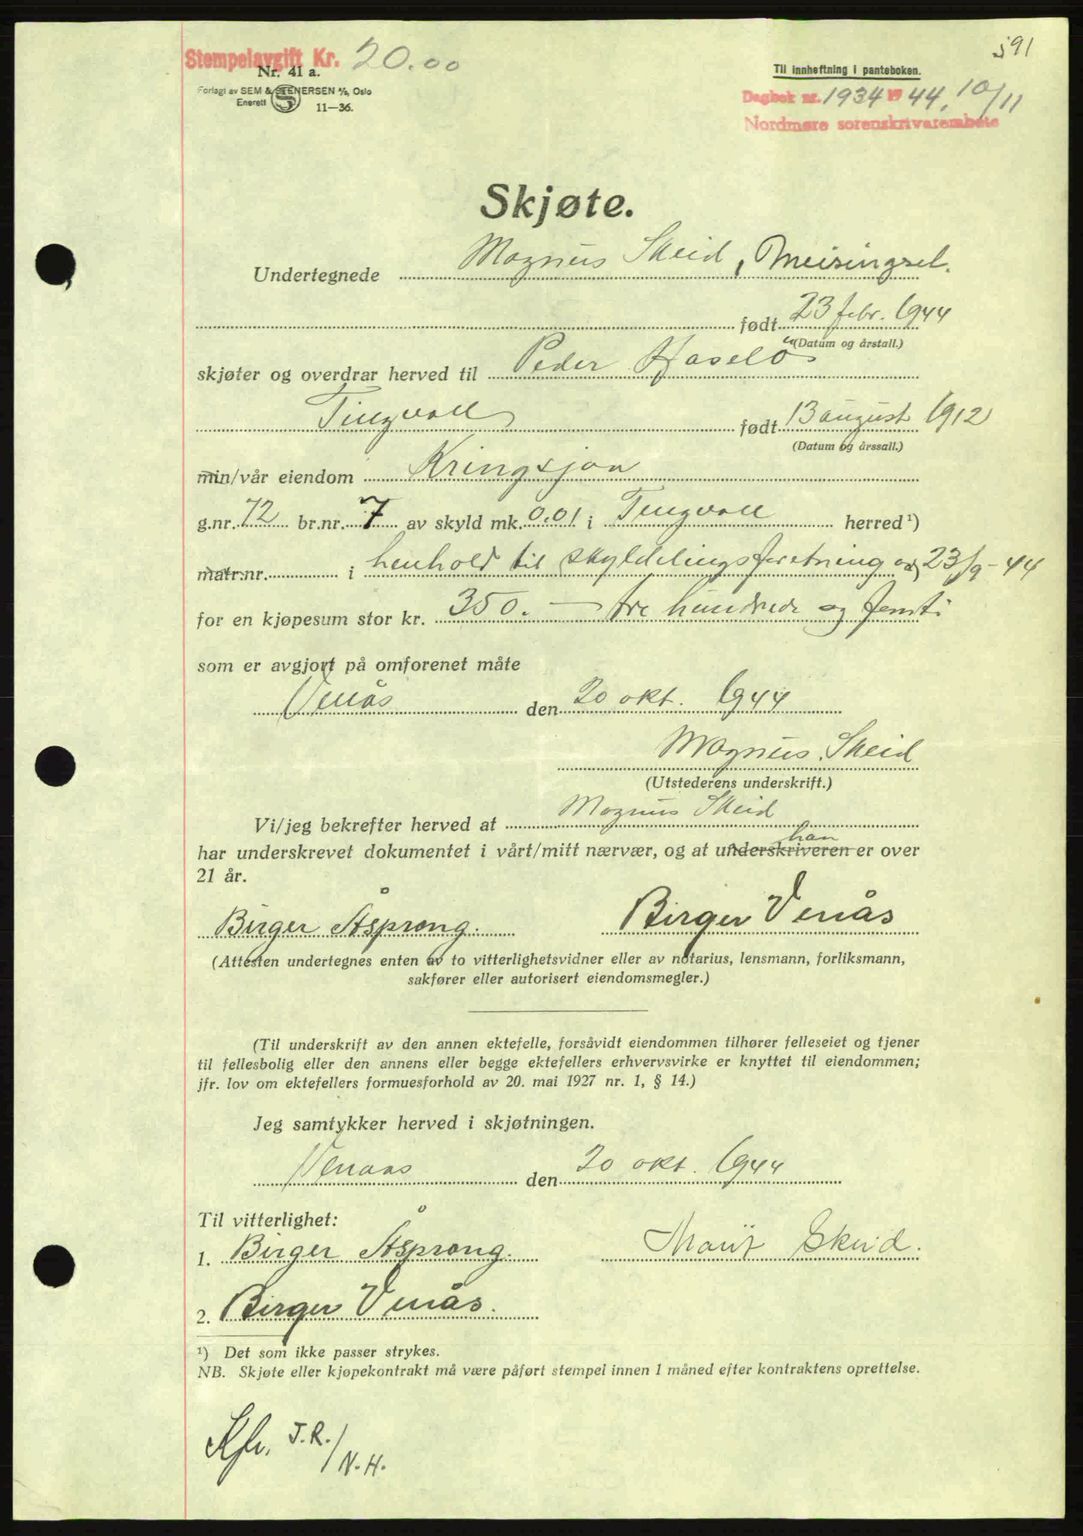 591
Stempelavgift Kr. 20.00
Nr. 41 a.
Forlagt av SEM & STENERSEN A/S, Oslo
Enerett S 11—36.
Til innheftning i panteboken.
Dagbok nr. 1934 1944, 10/11
Nordmøre sorenskriverembete
Skjøte.
Undertegnede Magnus Skeid, Meisingset.
født 23 febr. 1944
(Datum og årstall.)
skjøter og overdrar herved til Peder Haselö
Tingvoll født 13 august 1912
(Datum og årssall.)
min/vår eiendom Kringsjøa
g.nr. 72 br.nr. 7 av skyld mk. 0.01 i Tingvoll herred¹)
matr.nr. i henhold til skyldelingsforetning av 23/9-44
for en kjøpesum stor kr. 350. — tre hundrede og femti
som er avgjort på omforenet måte
Venås den 20 okt. 1944
Magnus Skeid
(Utstederens underskrift.)
Vi/jeg bekrefter herved at Magnus Skeid
han
har underskrevet dokumentet i vårt/mitt nærvær, og at underskriveren er over
21 år.
Birger Åsprong. Birger Venås
(Attesten undertegnes enten av to vitterlighetsvidner eller av notarius, lensmann, forliksmann,
sakfører eller autorisert eiendomsmegler.)
(Til underskrift av den annen ektefelle, forsåvidt eiendommen tilhører felleseiet og tjener
til fellesbolig eller den annens eller begge ektefellers erhvervsvirke er knyttet til eiendommen;
jfr. lov om ektefellers formuesforhold av 20. mai 1927 nr. 1, § 14.)
Jeg samtykker herved i skjøtningen.
Venaas den 20 okt. 1944
Til vitterlighet:
1. Birger Åsprong. Marit Skeid.
2. Birger Venås.
¹) Det som ikke passer strykes.
NB. Skjøte eller kjøpekontrakt må være påført stempel innen 1 måned efter kontraktens oprettelse.
Kfr. J.R./N.H.